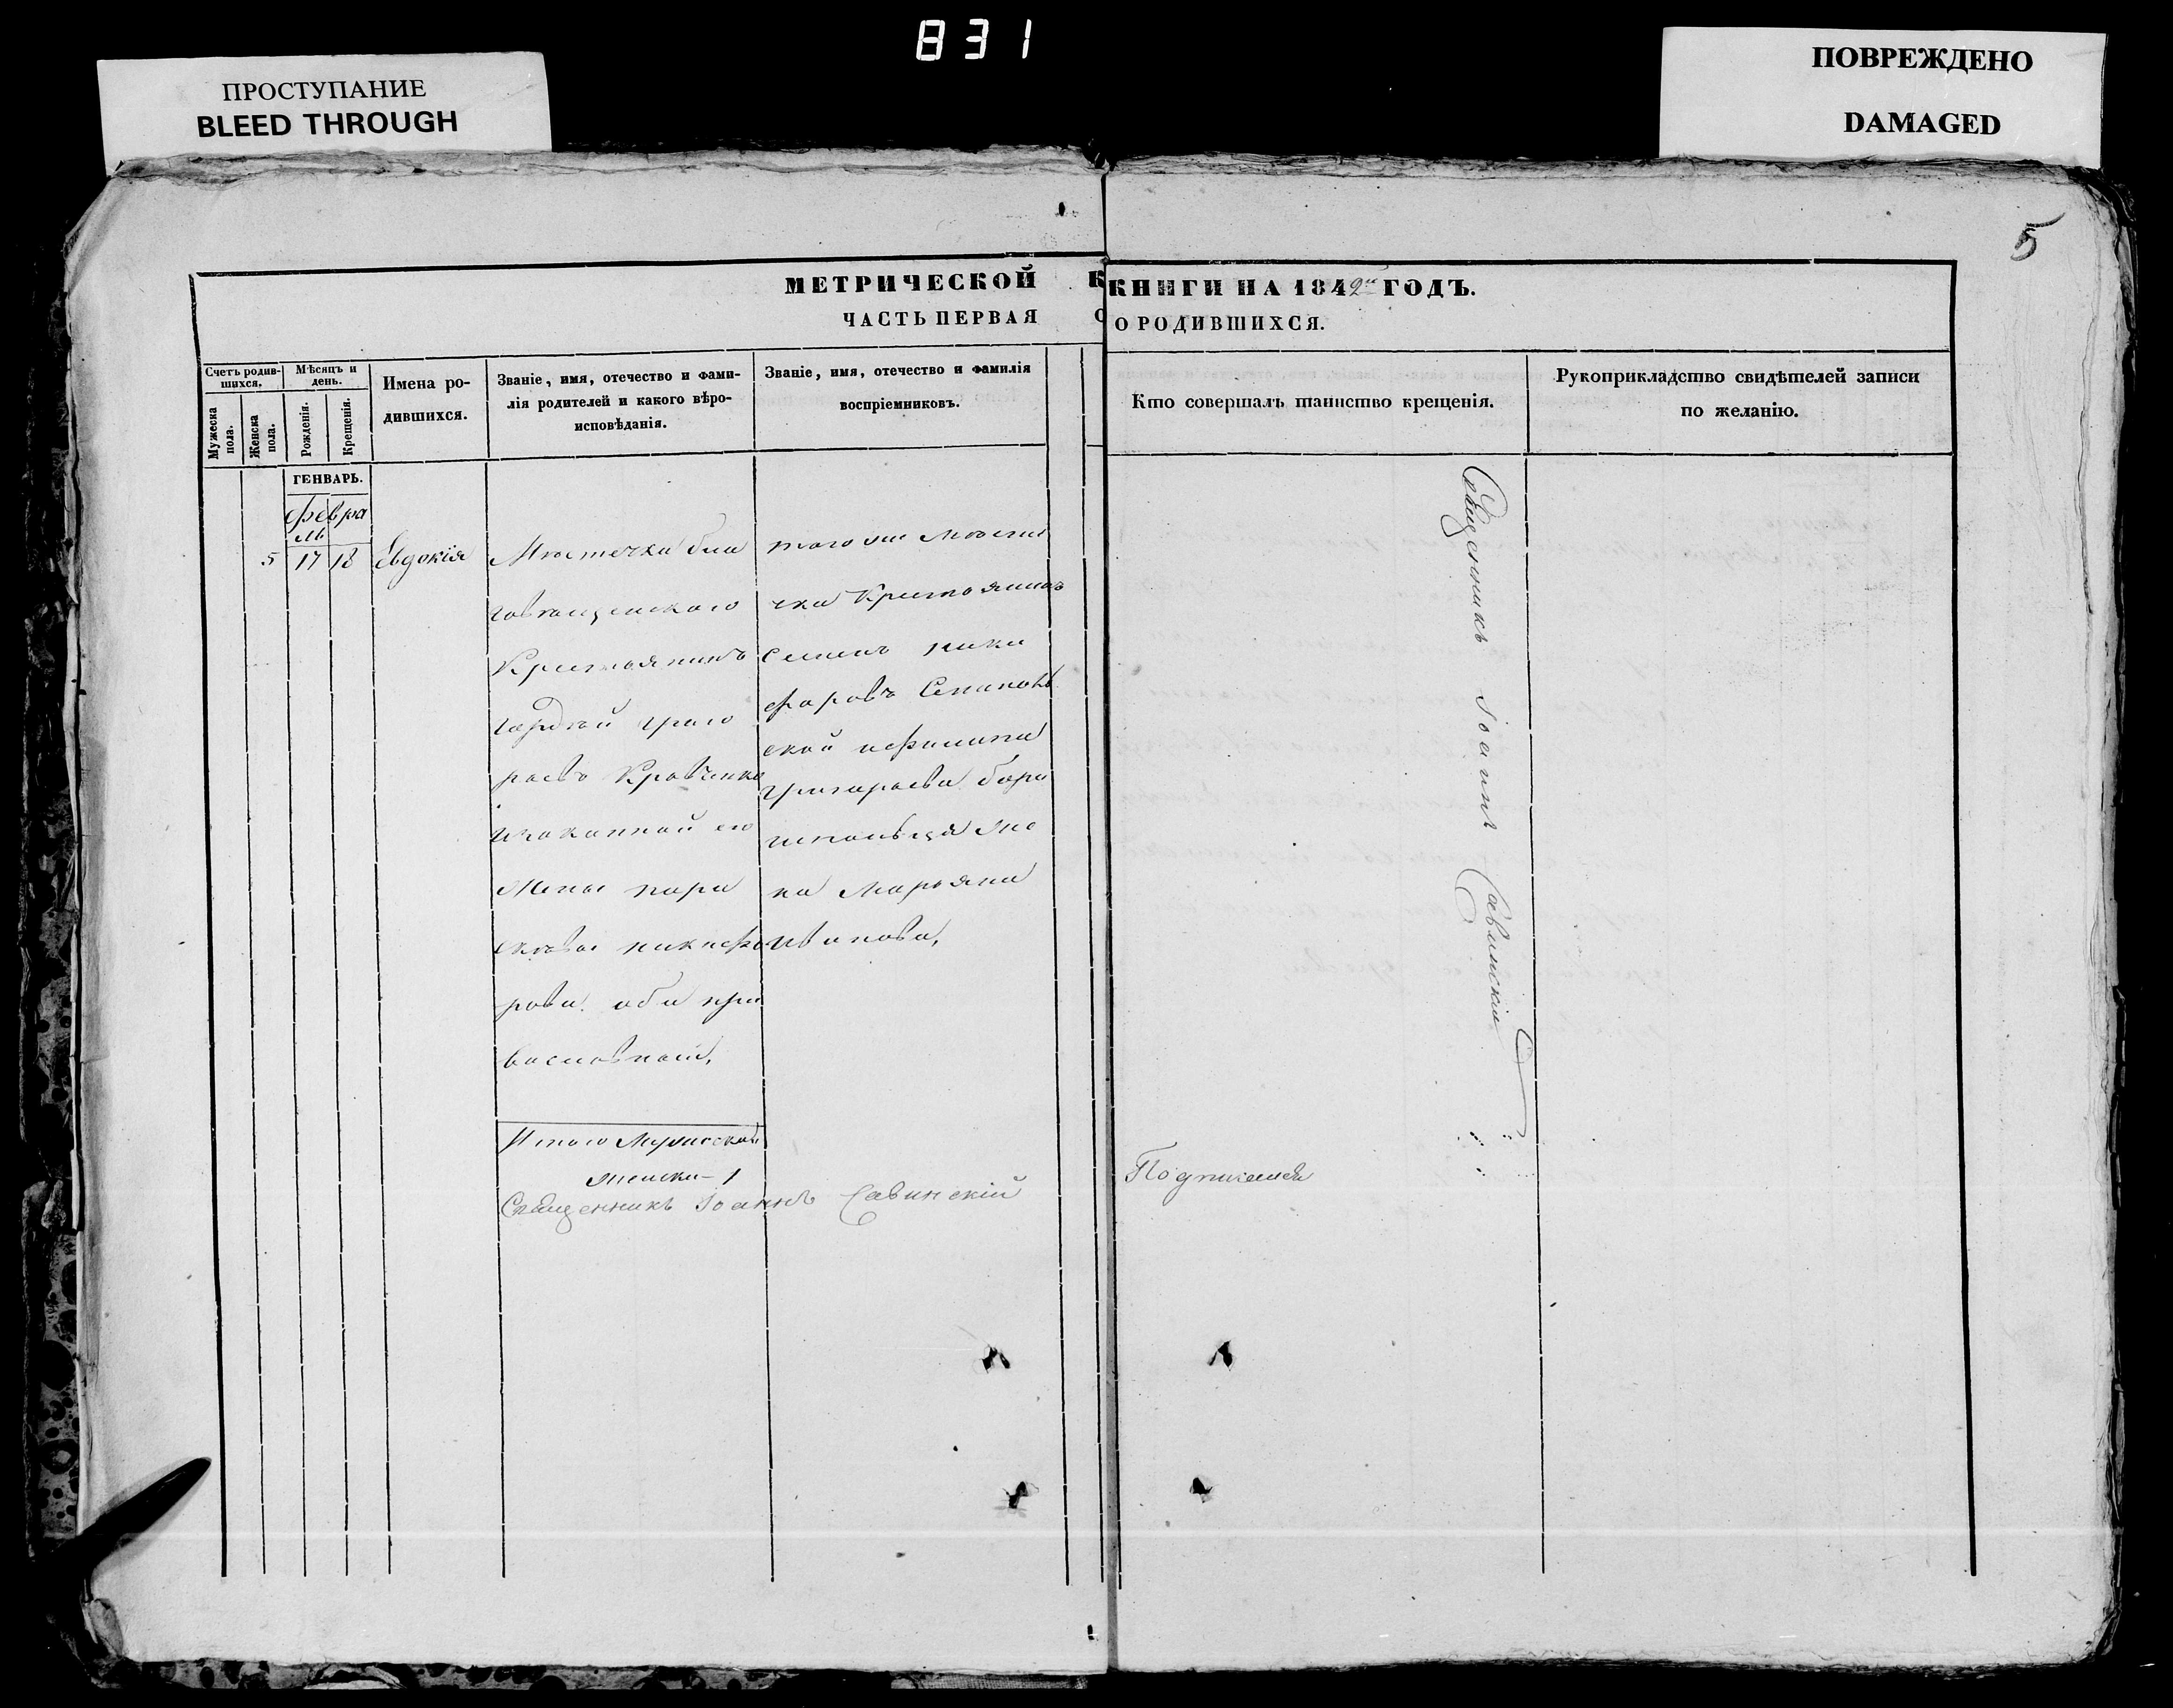 831
ПРОСТУПАНИЕ
BLEED THROUGH
ПОВРЕЖДЕНО
DAMAGED
5
МЕТРИЧЕСКОЙ КНИГИ НА 1842й ГОДЪ.
ЧАСТЬ ПЕРВАЯ О РОДИВШИХСЯ.
Счетъ родив-
шихся.
Мужеска
пола.
Женска
пола.
Мѣсяцъ и
день.
Рожденія.
Крещенія.
Имена ро-
дившихся.
Званіе, имя, отечество и фами-
лія родителей и какого вѣро-
исповѣданія.
Званіе, имя, отечество и фамилія
воспріемниковъ.
Кто совершалъ таинство крещенія.
Рукоприкладство свидѣтелей записи
по желанію.
ГЕНВАРЬ.
Февра
ль
5 17 18 Евдокія
Местечка Бла
говещенского
Крестоянинъ
Григо
раевъ Кравченко
изаконной его
жены пара
скевы никифо
рова. оба пра
вославной,
того же месте
чка Крестоянинъ
Семенъ ники
форовъ
Григораева
же
на Марьяна
Иванова,
Итого Мужеска
женска - 1
Священникъ Іоаннъ Савинскій
Священникъ Іоаннъ Савинскій